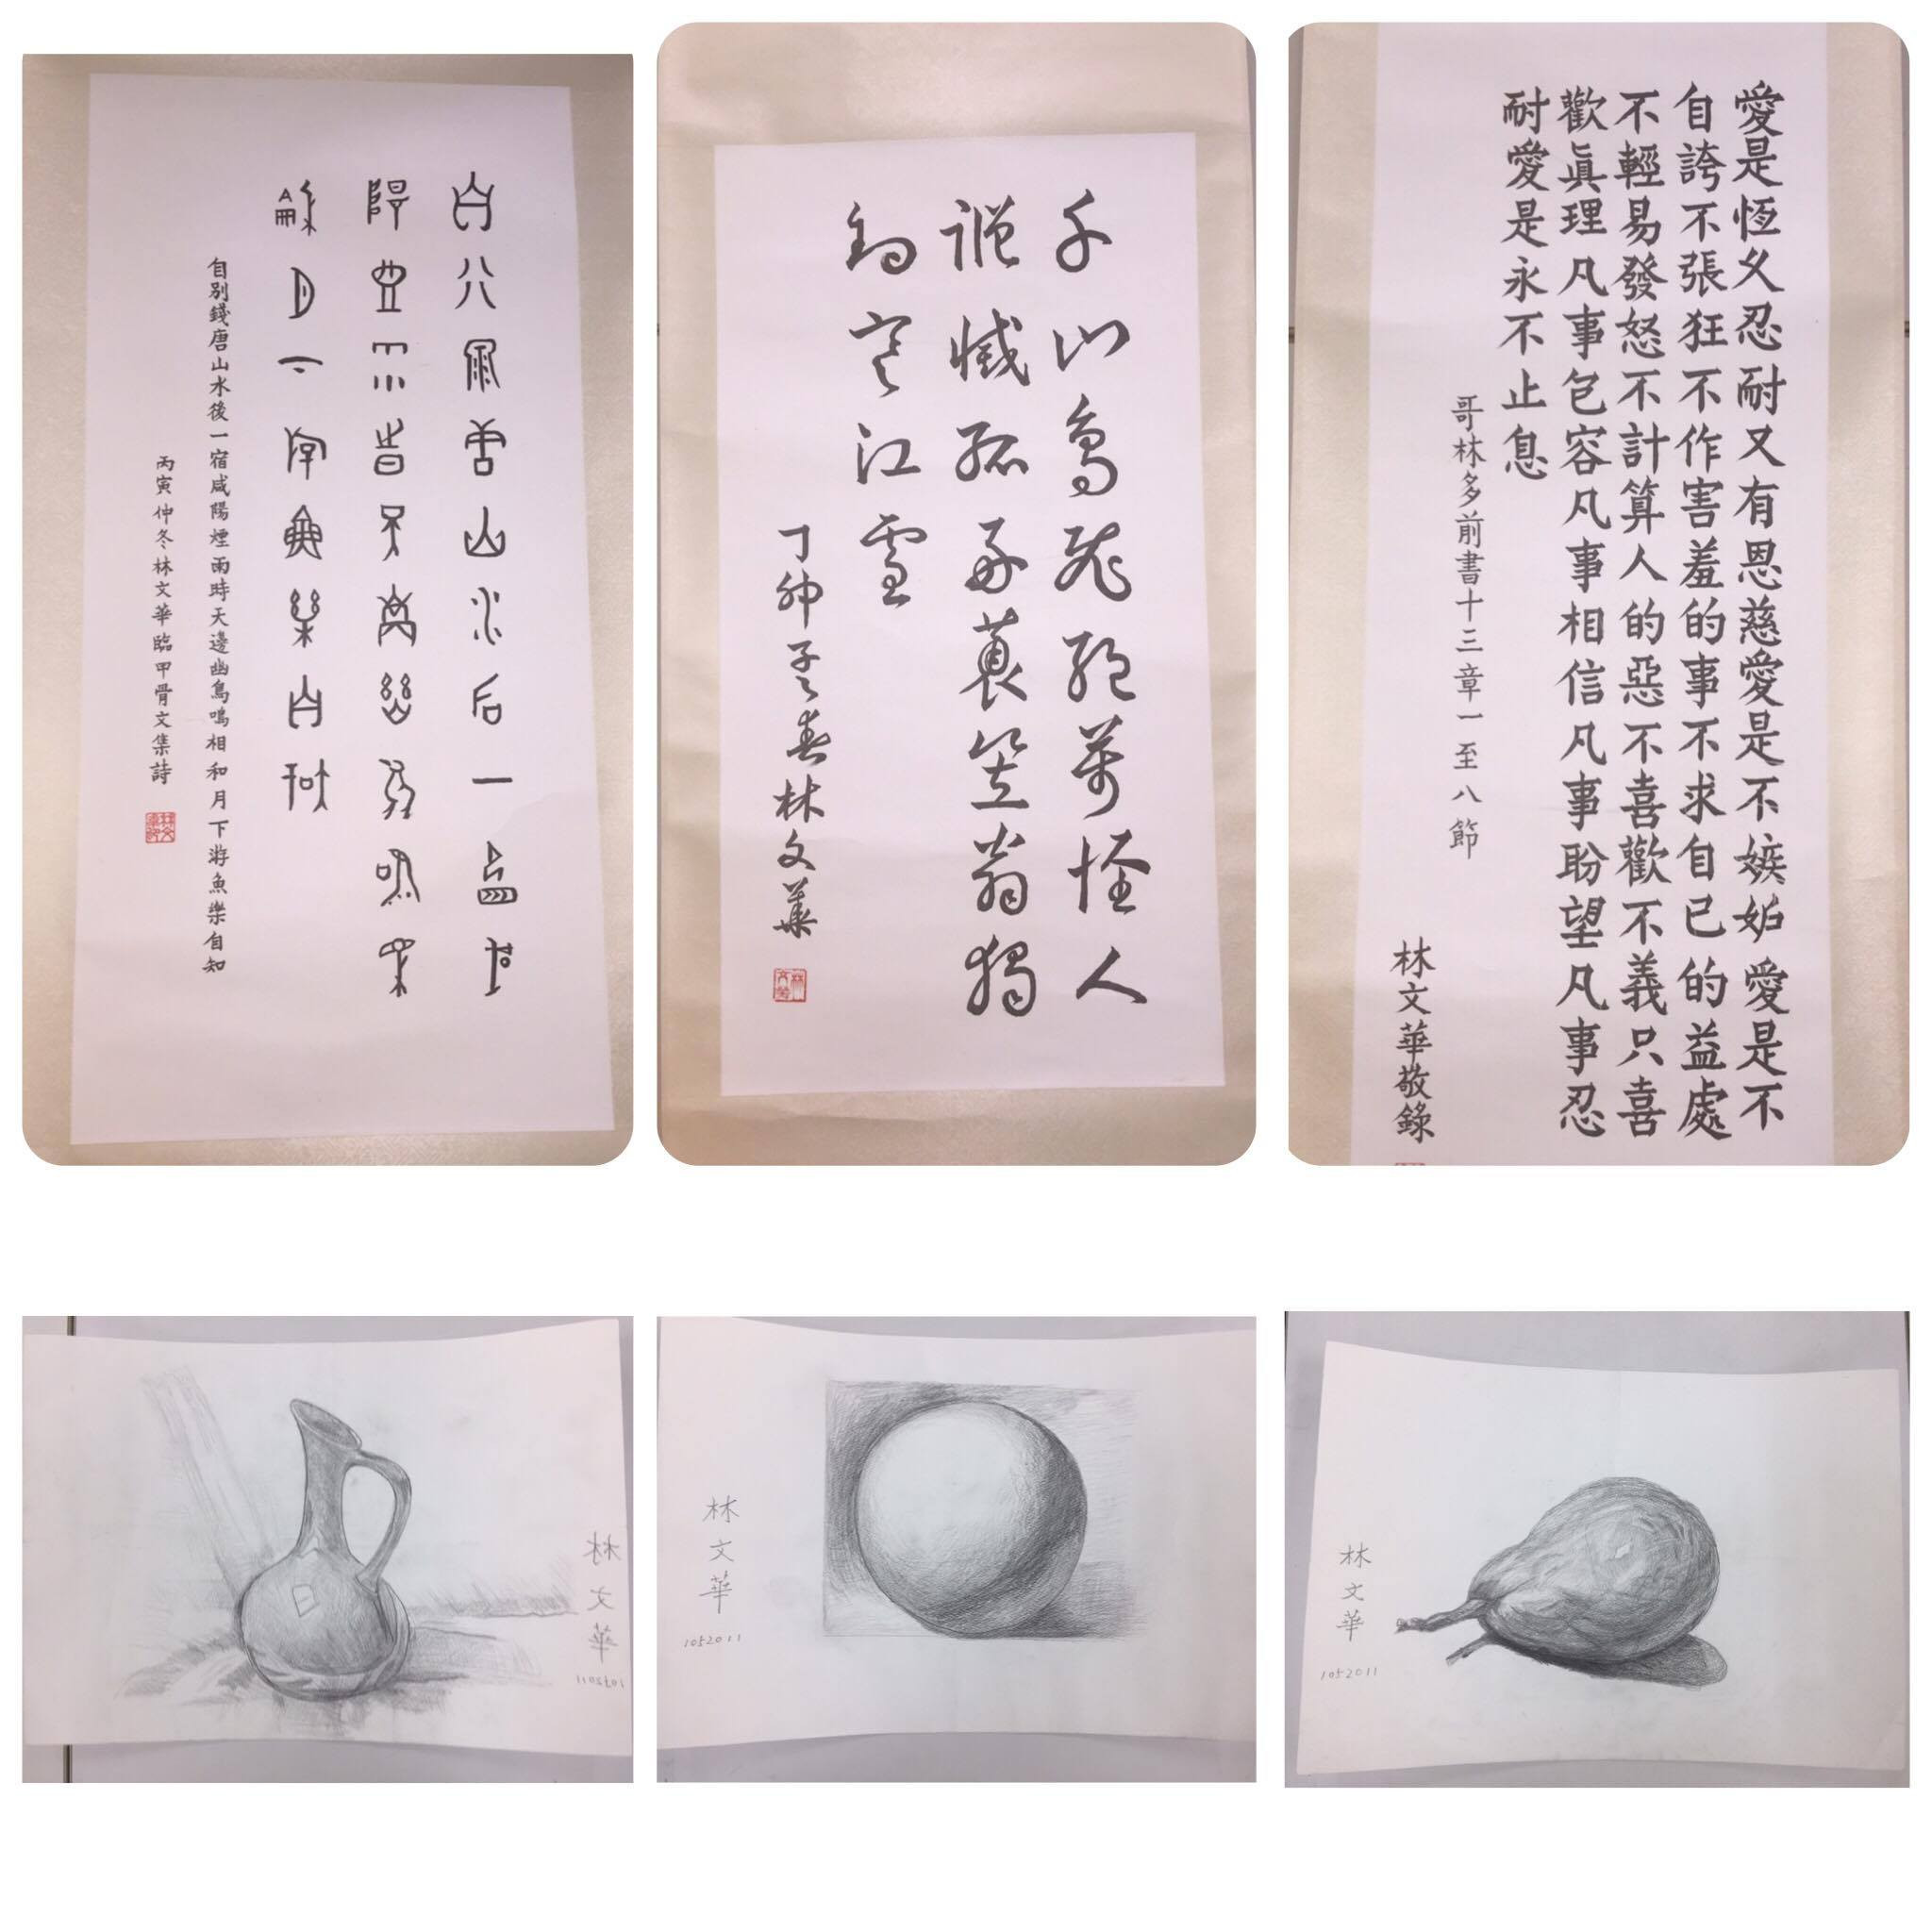 自別錢唐山水後一宿咸
陽煙雨時天邊幽鳥鳴相
和月下游魚樂自知
自別錢唐山水後一宿咸陽煙雨時天邊幽鳥鳴相和月下游魚樂自知
丙寅仲冬林文華臨甲骨文集詩
千山鳥飛絕萬徑人
蹤滅孤舟蓑笠翁獨
釣寒江雪
丁卯孟春林文華
愛是恆久忍耐又有恩慈愛是不嫉妬愛是不
自誇不張狂不作害羞的事不求自己的益處
不輕易發怒不計算人的惡不喜歡不義只喜
歡眞理凡事包容凡事相信凡事盼望凡事忍
耐愛是永不止息
哥林多前書十三章一至八節
林文華敬錄
林文華
林文華
1052011
林文華
1052011